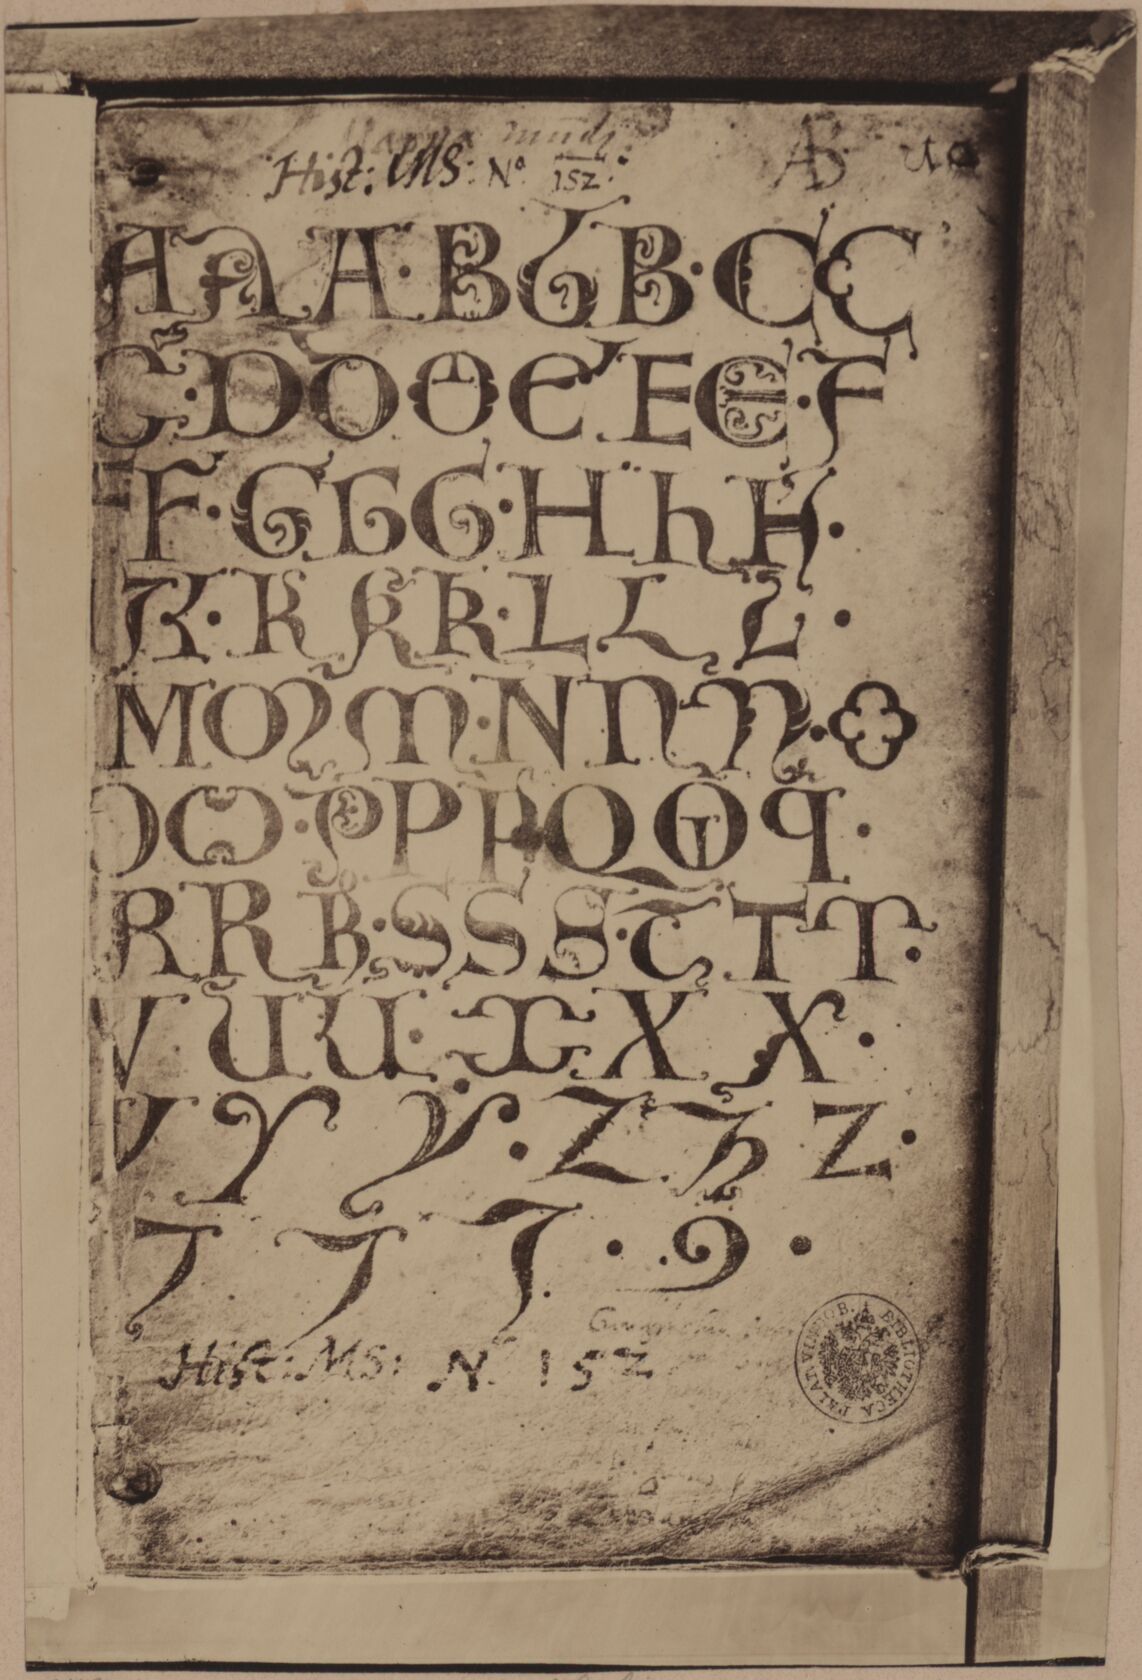 Mappa mundi
Hist: MS: Nº 152.
AB
A A A · B B B · C C
C · D D O E E E · F
F F · G G G · H h H ·
K · K K K · L L L ·
M M M · N N N · O
O O · P P P Q Q q ·
R R R · S S S · T T T ·
V U U · X X X ·
V Y Y · Z Z Z ·
7 7 7 · 9 ·
Hist: MS: N. 152
BIBLIOTHECA PALAT. VINDOB.